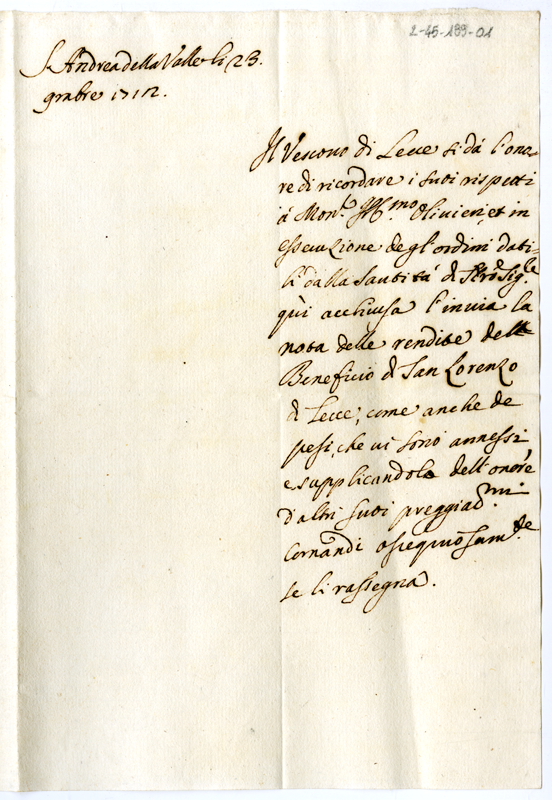 2-45-199-01
S. Andrea della Valle li 23.
9mbre 1712.
Il Vescovo di Lecce si dà l'ono-
re di ricordare i suoi rispetti
à Mon.r Ill.mo Olivieri, et in
essecuzione degl'ordini dati-
li dalla Santità di Nro Sig.re
quì acchiusa l'invia la
nota delle rendite dell
Beneficio di San Lorenzo
di Lecce, come anche de
pesi, che vi sono annessi
e supplicandola dell'onore
d'altri suoi preggiad.mi
Comandi ossequiosam.te
se li rassegna.